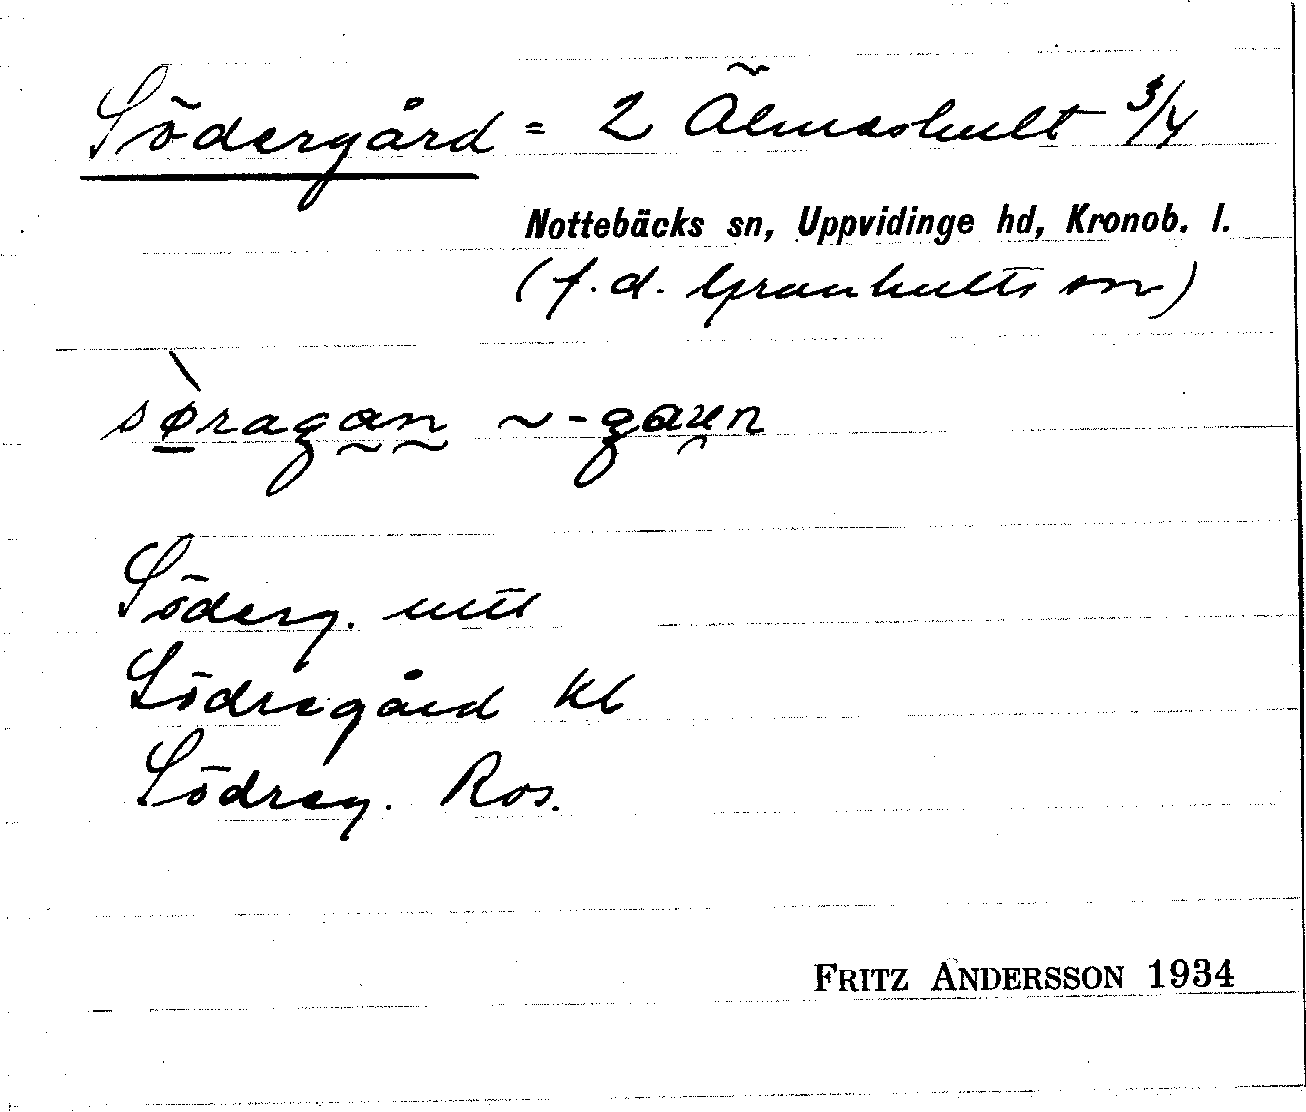 Södergård = 2 Älmashult 3/4
Nottebäcks sn, Uppvidinge hd, Kronob. l.
(f. d. Granhults sn)
sø̀ragan ~ -gaʀn
Söderg. utt
Södregård kb
Södreg. Ros.
FRITZ ANDERSSON 1934